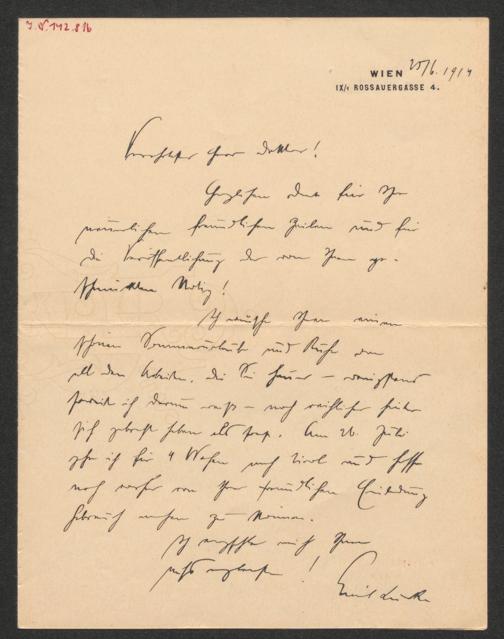 J.N. 142.816
WIEN 25/6. 1914
IX/1 ROSSAUERGASSE 4.
Verehrter Herr Doktor!
Herzlichen Dank für Ihre
freundlichen Zeilen und für
die Veröffentlichung der von Ihnen ge-
Notiz!
Ich wünsche Ihnen einen
schönen Sommerurlaub und Ruhe von
all den Arbeiten, die Sie heuer – wenigstens
soweit ich davon weiß – noch reichlicher früher
sich gebracht haben als sonst. Am 26. Juli
gehe ich für 4 Wochen nach Tirol und hoffe
noch vorher von Ihrer freundlichen Einladung
Gebrauch machen zu können.
Ich empfehle mich Ihnen
Emil Lucka